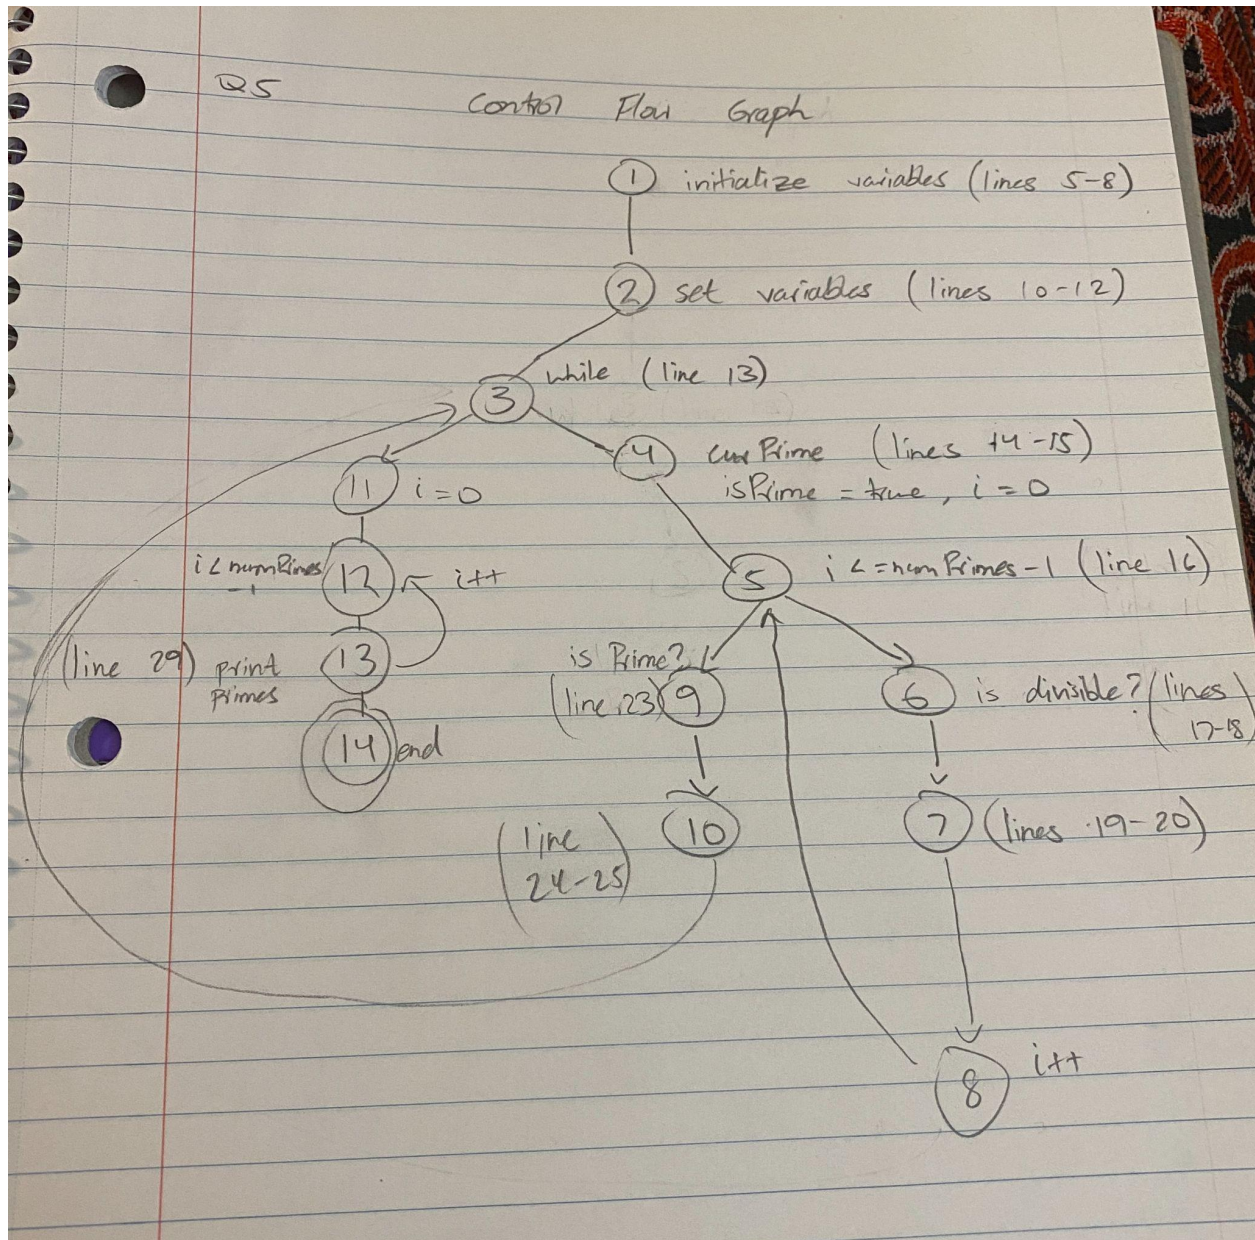 Q5
Control Flow Graph
1 initialize variables (lines 5-8)
2 set variables (lines 10-12)
3 while (line 13)
4 curPrime (lines 14-15)
isPrime = true, i = 0
11 i=0
i < numPrimes
-1
12 i++
5 i <= numPrimes-1 (line 16)
(line 29) print
primes
13
is Prime?
(line 23) 9
6 is divisible? (lines
17-18)
14 end
10
(line
24-25)
7 (lines 19-20)
8 i++